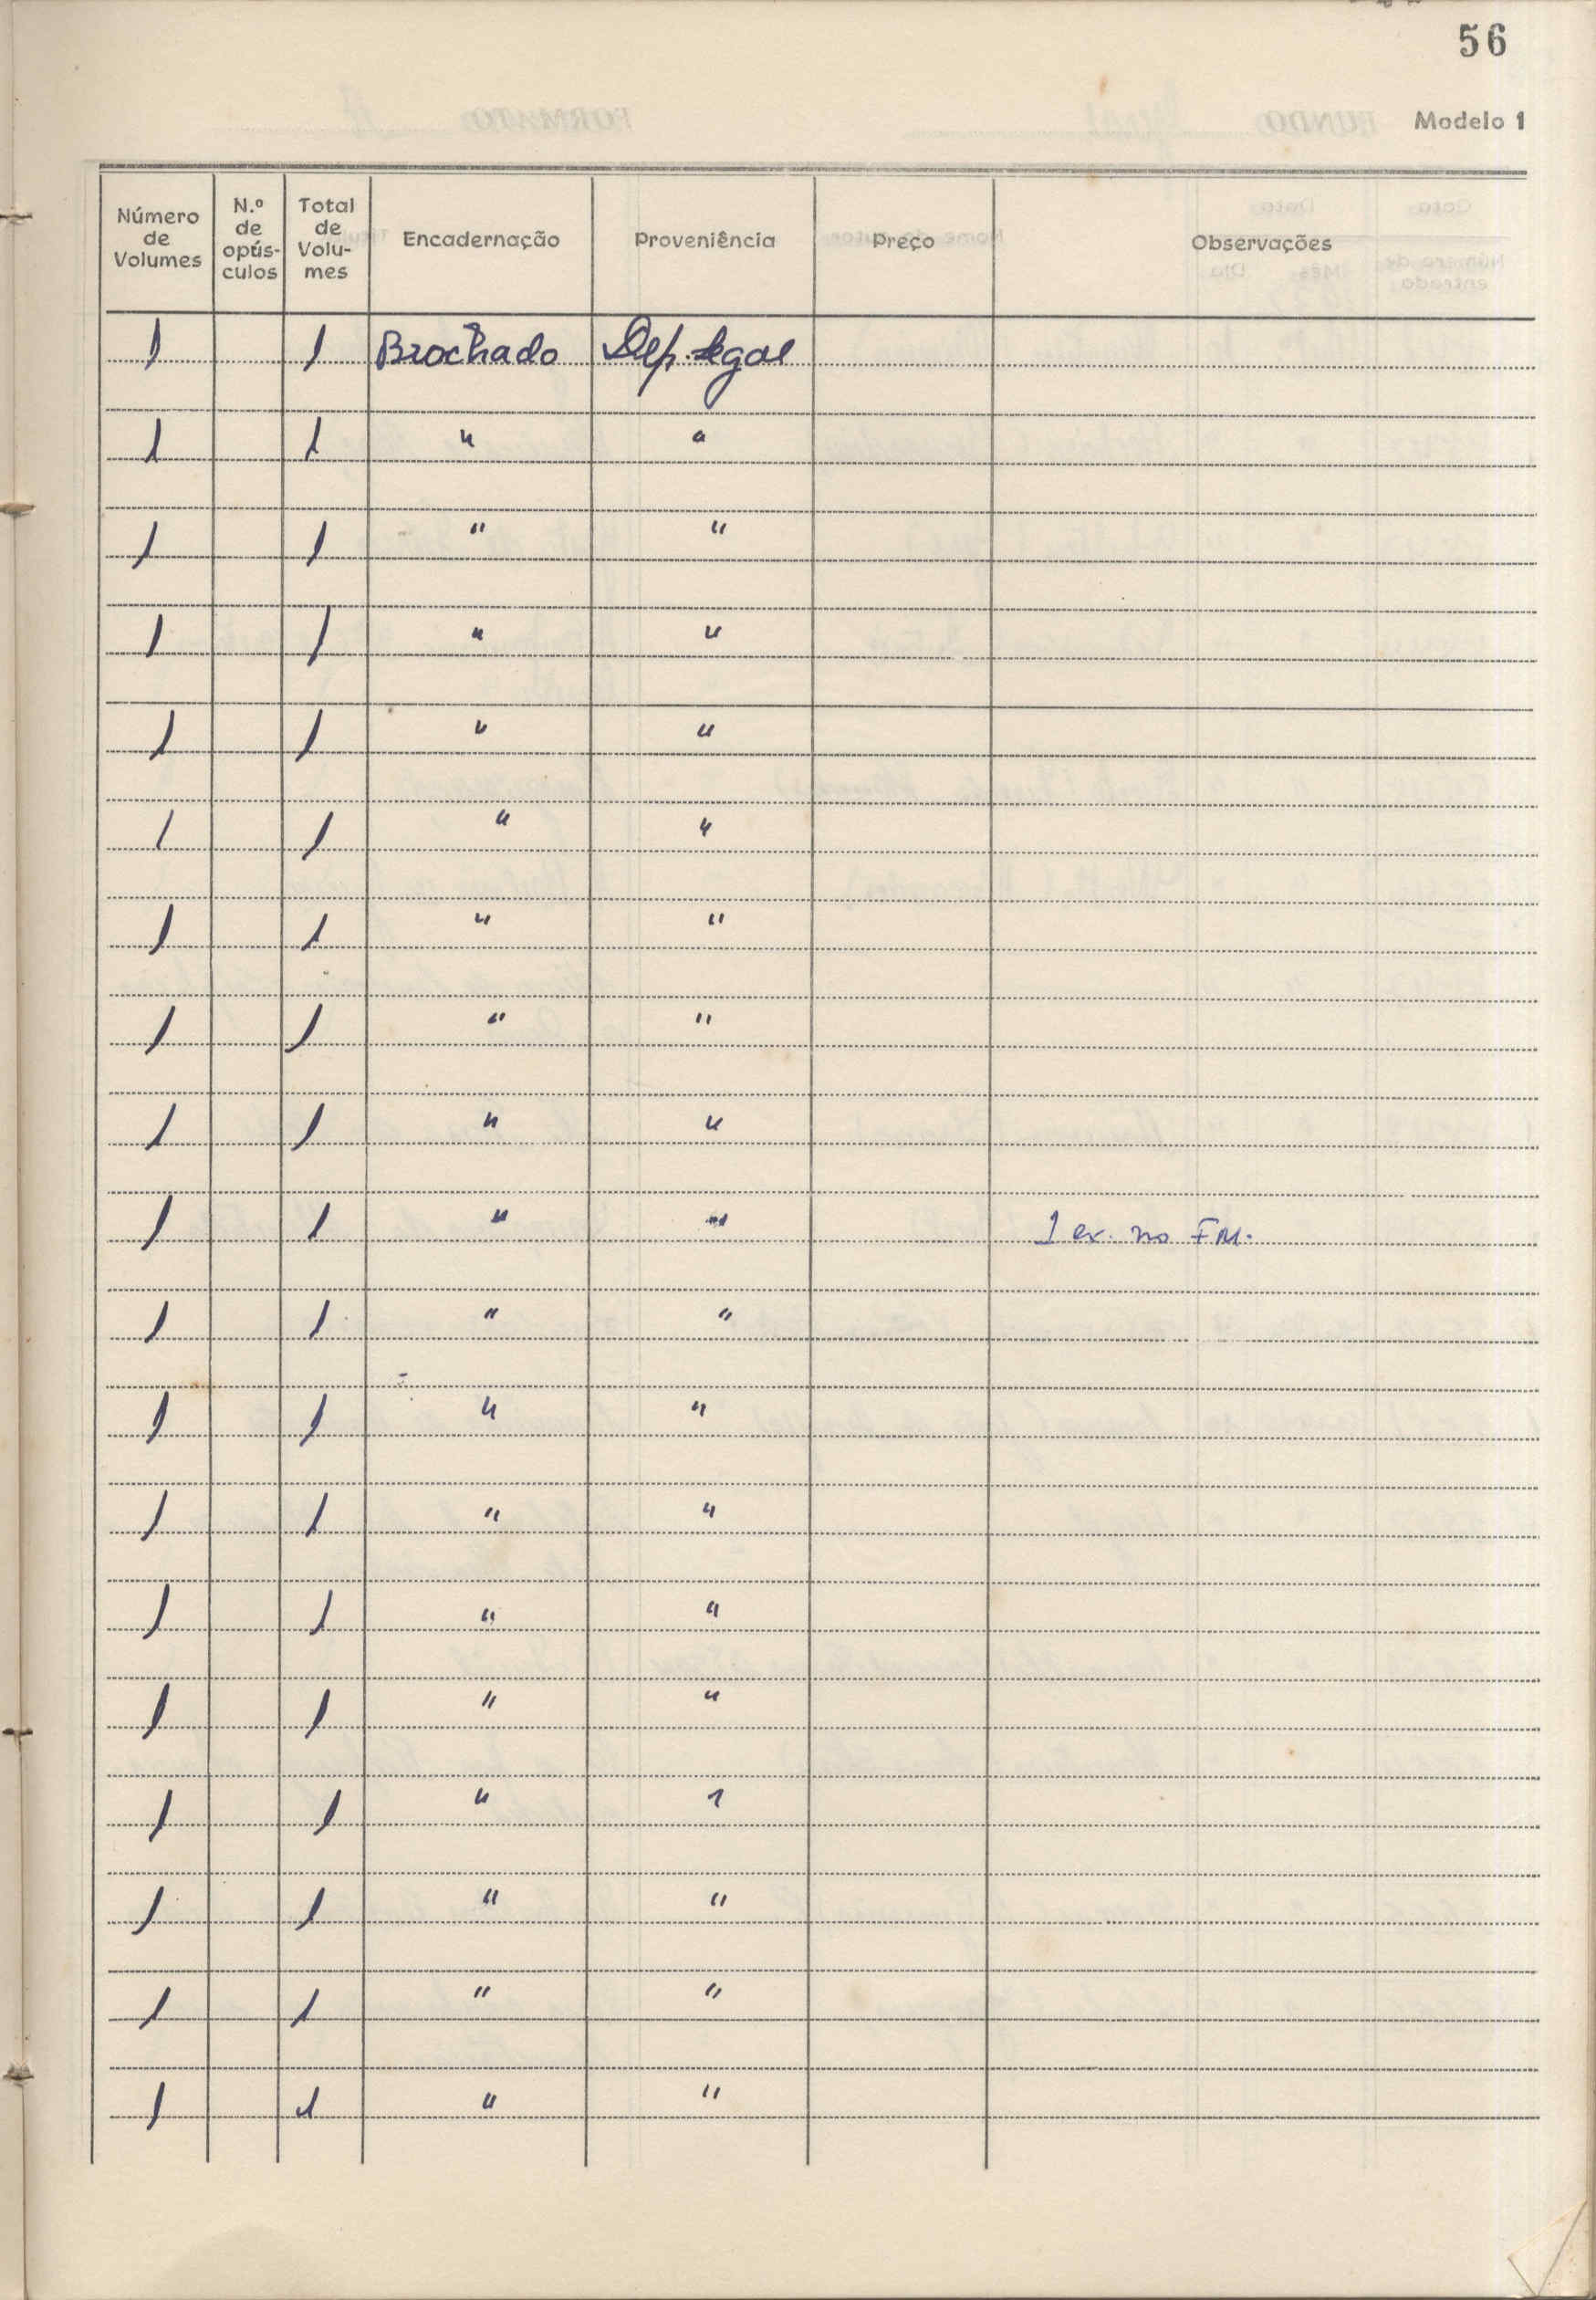 56
Modelo 1
Número de Volumes N.º de opús-culos Total de Volu-mes Encadernação Proveniência Preço Observações
1 1 Brochado Dep. legal
1 1 " "
1 1 " "
1 1 " "
1 1 " "
1 1 " "
1 1 " "
1 1 " "
1 1 " "
1 1 " " 1 ex. no FM.
1 1 " "
1 1 " "
1 1 " "
1 1 " "
1 1 " "
1 1 " "
1 1 " "
1 1 " "
1 1 " "